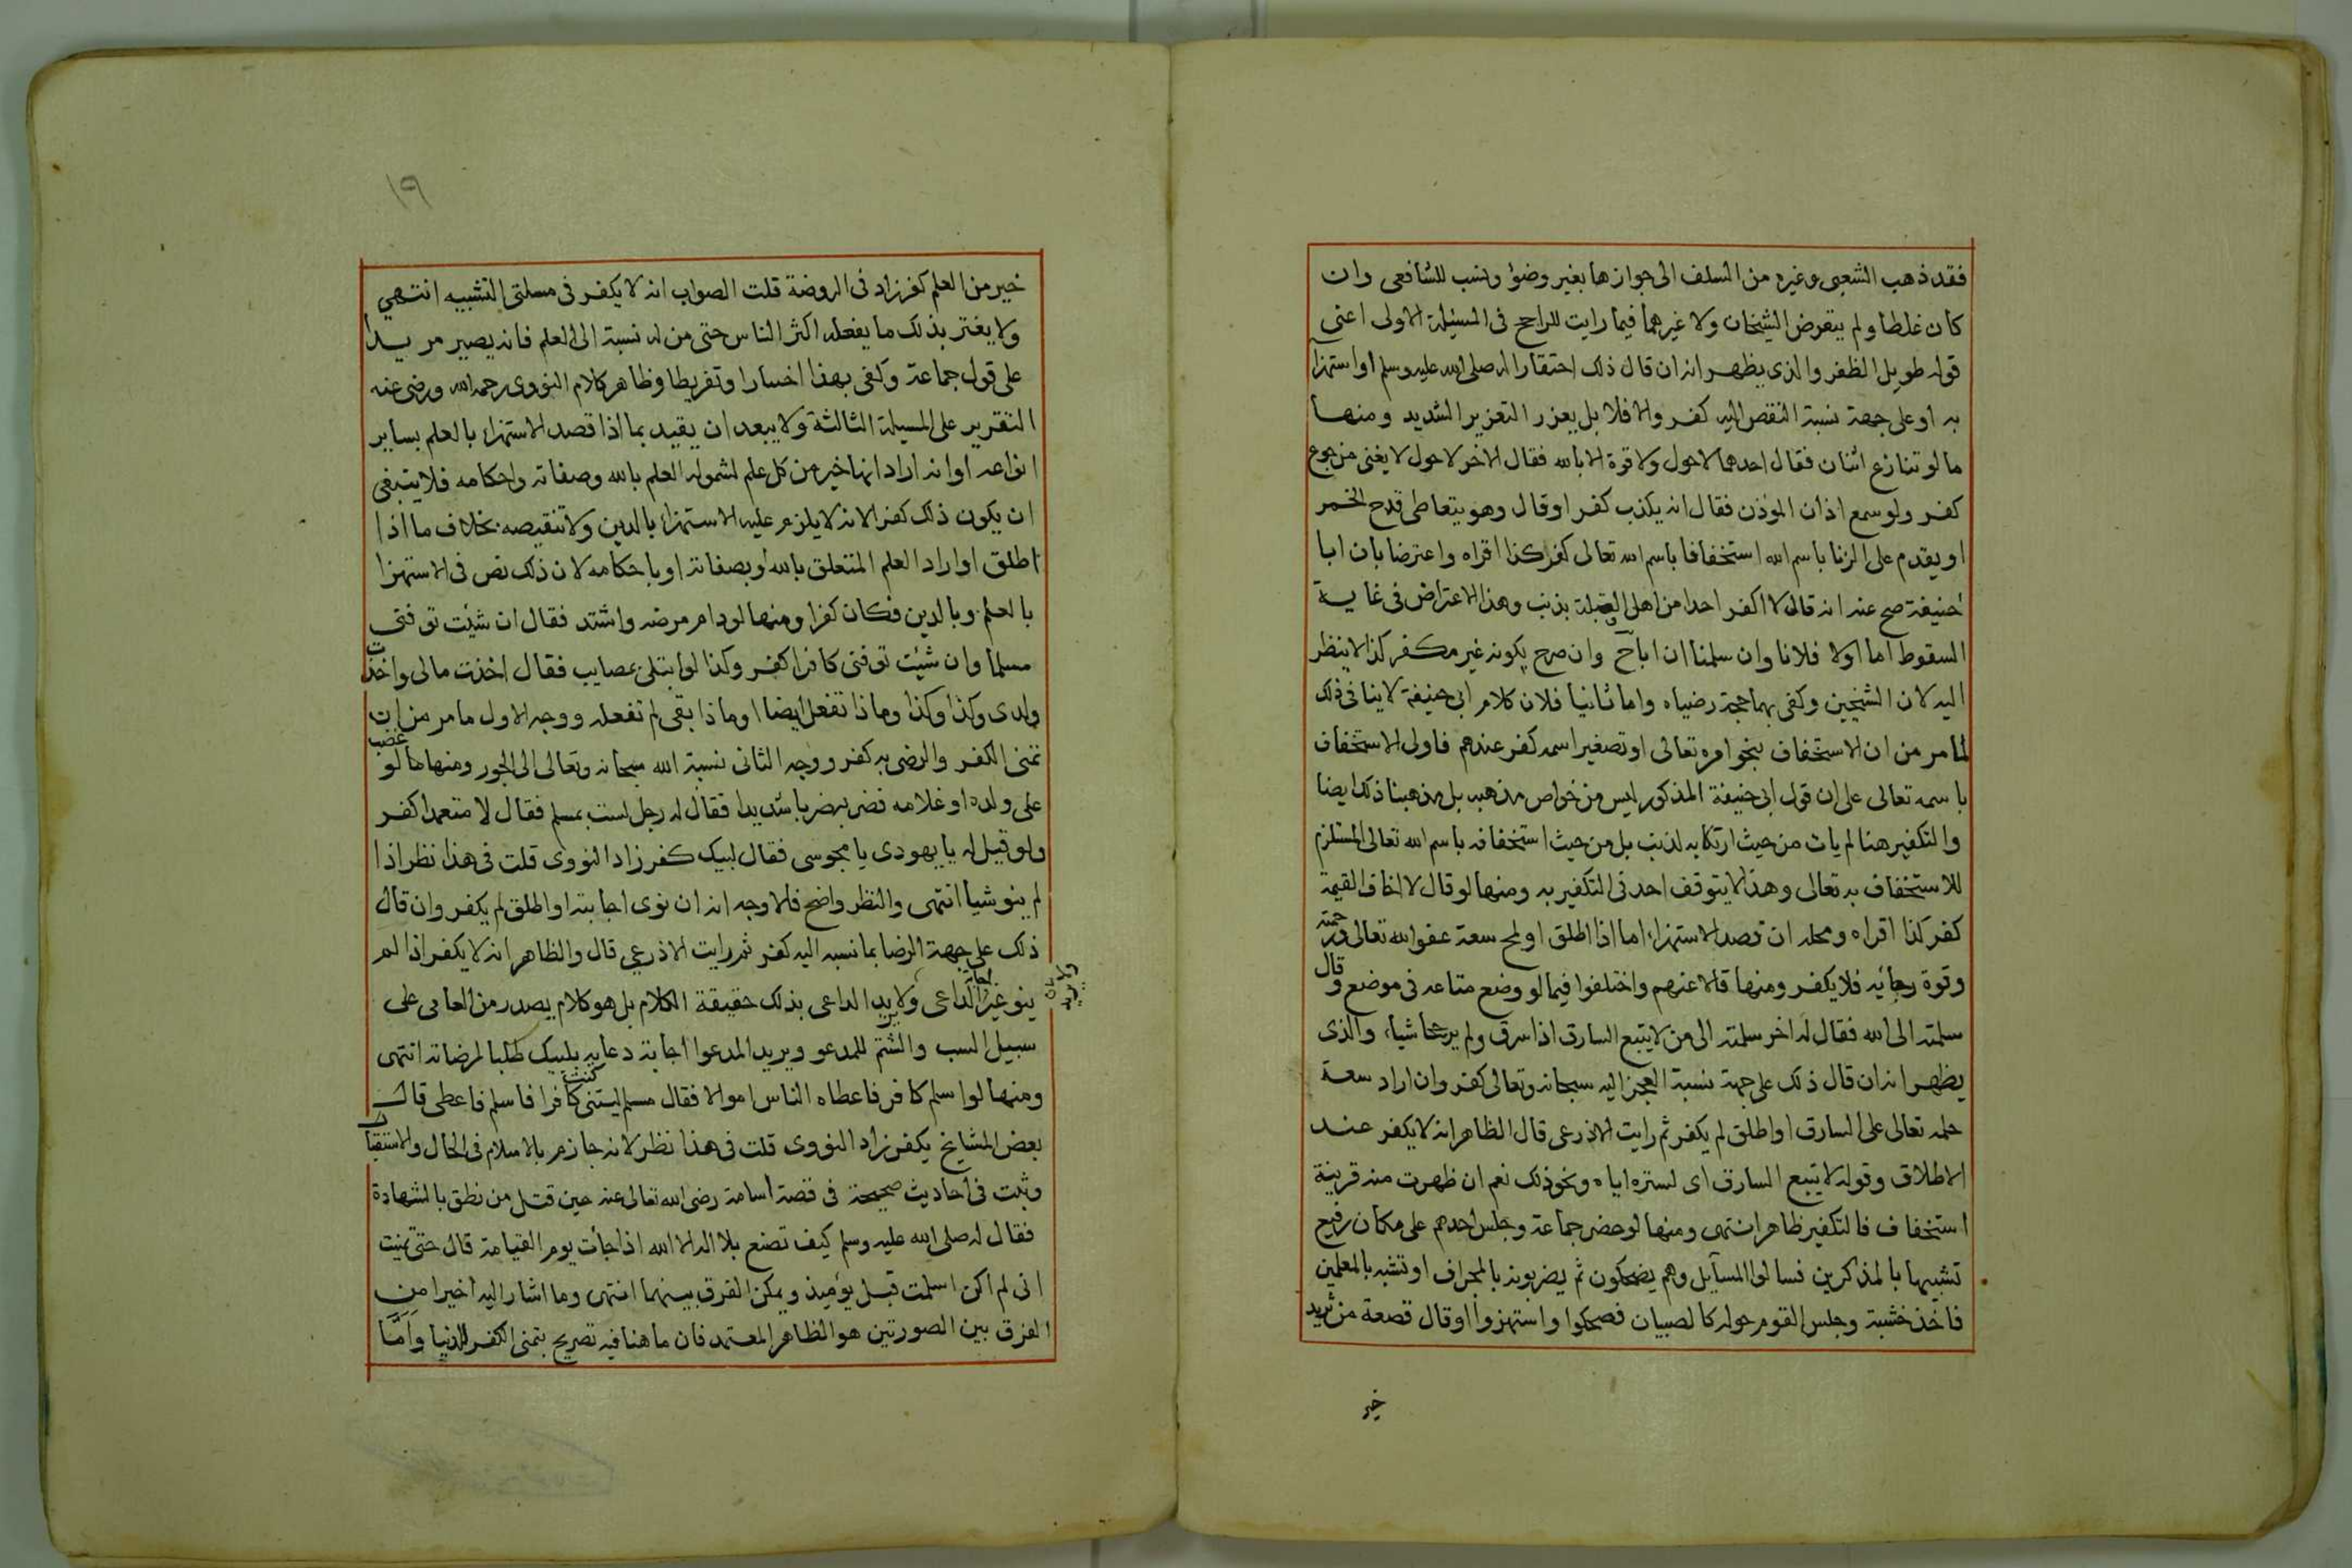 فقد ذهب الشعبي وغيره من السلف الى جوازها بغير وضوء ونسب للشافعي وان
كان غلطا ولم يتعرض الشيخان ولا غيرهما فيما رايت للراجح فى المسئلة الاولى اعنى
قوله طويل الظفر والذى يظهر انه ان قال ذلك احتقارا له صلى الله عليه وسلم او استهزا
به او على جهة نسبة النقص اليه كفر والا فلا بل يعزر التعزير الشديد ومنها
ما لو تنازع اثنان فقال احدهما لاحول ولا قوة الا بالله فقال الاخر لاحول لا يغنى من جوع
كفر ولو سمع اذان المؤذن فقال انه يكذب كفر او قال وهو يتعاطى قدح الخمر
او يقدم على الزنا باسم الله استخفافا باسم الله تعالى كفر كذا اقراه واعترضا بان ابا
حنيفة صح عنه انه قال لا اكفر احدا من اهل القبلة بذنب وهذا الاعتراض فى غاية
السقوط اما اولا فلانا وان سلمنا ان اباح وان صرح بكونه غير مكفر كذا لا ينظر
اليه لان الشيخين وكفى بهما حجة رضياه واما ثانيا فلان كلام ابى حنيفة لا ينافى ذلك
لما مر من ان الاستخفاف بنحو امره تعالى او تصغير اسمه كفر عندهم فاولى الاستخفاف
باسمه تعالى على ان قول ابى حنيفة المذكور ليس من خواص مذهبه بل مذهبنا ذلك ايضا
والتكفير هنا لم يات من حيث ارتكابه لذنب بل من حيث استخفافه باسم الله تعالى المستلزم
للاستخفاف به تعالى وهذا لا يتوقف احد فى التكفير به ومنها لو قال لا اخاف القيمة
كفر كذا اقراه ومحله ان قصد الاستهزاء اما اذا اطلق او لمح سعة عفو الله تعالى ورحمته
وقوة رجائيه فلا يكفر ومنها قالا عنهم واختلفوا فيما لو وضع متاعه فى موضع وقال
سلمته الى الله فقال له اخر سلمته الى من لا يتبع السارق اذا سرق ولم يرجحا شياء والذى
يظهر انه ان قال ذلك على جهة نسبة العجز اليه سبحانه وتعالى كفر وان اراد سعة
حلمه تعالى على السارق او اطلق لم يكفر ثم رايت الاذرعى قال الظاهر انه لا يكفر عند
الاطلاق وقوله لا يتبع السارق اى لستره اياه ونحو ذلك نعم ان ظهرت منه قرينة
استخفاف فالتكفير ظاهر انتهى ومنها لو حضر جماعة وجلس احدهم على مكان رفيع
تشبيها بالمذكرين فسالوا المسآيل وهم يضحكون ثم يضربونه بالمجراف او تشبه بالمعلمين
فاخذ خشبة وجلس القوم حوله كالصبيان فضحكوا واستهزوا او قال قصعة من ثريد
خير
١٩
خير من العلم كفر زاد فى الروضة قلت الصواب انه لا يكفر فى مسلتى التشبيه انتهي
ولا يغتر بذلك ما يفعله اكثر الناس حتى من له نسبة الى العلم فانه يصير مرتدا
على قول جماعة وكفى بهذا اخسارا وتفريطا وظاهر كلام النووى رحمه الله ورضى عنه
التقرير على المسيلة الثالثة ولا يبعد ان يقيد بما اذا قصد الاستهزاء بالعلم بساير
انواعه او انه اراد انها خير من كل علم لشموله العلم بالله وصفاته واحكامه فلا ينبغى
ان يكون ذلك كفرا لانه لا يلزم عليه الاستهزاء بالدين ولا تنقيصه بخلاف ما اذا
اطلق او اراد العلم المتعلق بالله او بصفاته او باحكامه لان ذلك نص فى الاستهزا
بالعلم وبالدين فكان كفرا ومنها لو دام مرضه واشتد فقال ان شئت توفنى
مسلما وان شئت توفنى كافرا كفر وكذا لو ابتلى بمصايب فقال اخذت مالى واخذت
ولدى وكذا وكذا وماذا تفعل ايضا او ماذا بقى لم تفعله ووجه الاول ما مر من ان
تمنى الكفر والرضى به كفر ووجه الثانى نسبة الله سبحانه وتعالى الى الجور ومنها ما لو غضب
على ولده او غلامه فضربه ضربا شديدا فقال له رجل لست بمسلم فقال لا متعمدا كفر
ولو قيل له يا يهودى يا مجوسى فقال لبيك كفر زاد النووى قلت فى هذا نظر اذا
لم ينو شيا انتهى والنظر واضح فالاوجه انه ان نوى اجابته او اطلق لم يكفر وان قال
ذلك على جهة الرضا بما نسبه اليه كفر ثم رايت الاذرعي قال والظاهر انه لا يكفر اذا لم
ينو غير اجابة الداعى ولا يريد الداعى بذلك حقيقة الكلام بل هو كلام يصدر من العامى على
سبيل السب والشتم للمدعو ويريد المدعوا اجابة دعايه بلبيك طلبا لمرضاته انتهى
ومنها لو اسلم كافر فاعطاه الناس اموالا فقال مسلم ليتنى كنت كافرا فاسلم فاعطى قال
بعض المشايخ يكفر زاد النووى قلت فى هذا نظر لانه جازم بالاسلام فى الحال والاستقبال
وثبت فى احاديث صحيحة فى قصة اسامة رضى الله تعالى عنه حين قتل من نطق بالشهادة
فقال له صلى الله عليه وسلم كيف تصنع بلا اله الا الله اذا جأت يوم القيامة قال حتى تمنيت
انى لم اكن اسلمت قبل يومئذ ويمكن الفرق بينهما انتهى وما اشار اليه اخيرا من
الفرق بين الصورتين هو الظاهر المعتمد فان ما هنا فيه تصريح بتمنى الكفر للدنيا واما